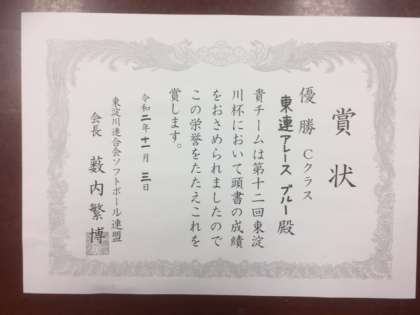 賞状
優勝 Cクラス
東連アレース ブルー 殿
貴チームは第十二回東淀
川杯において頭書の成績
をおさめられましたので
この栄誉をたたえこれを
賞します。
令和二年十一月三日
東淀川連合会ソフトボール連盟
会長 藪内繁博